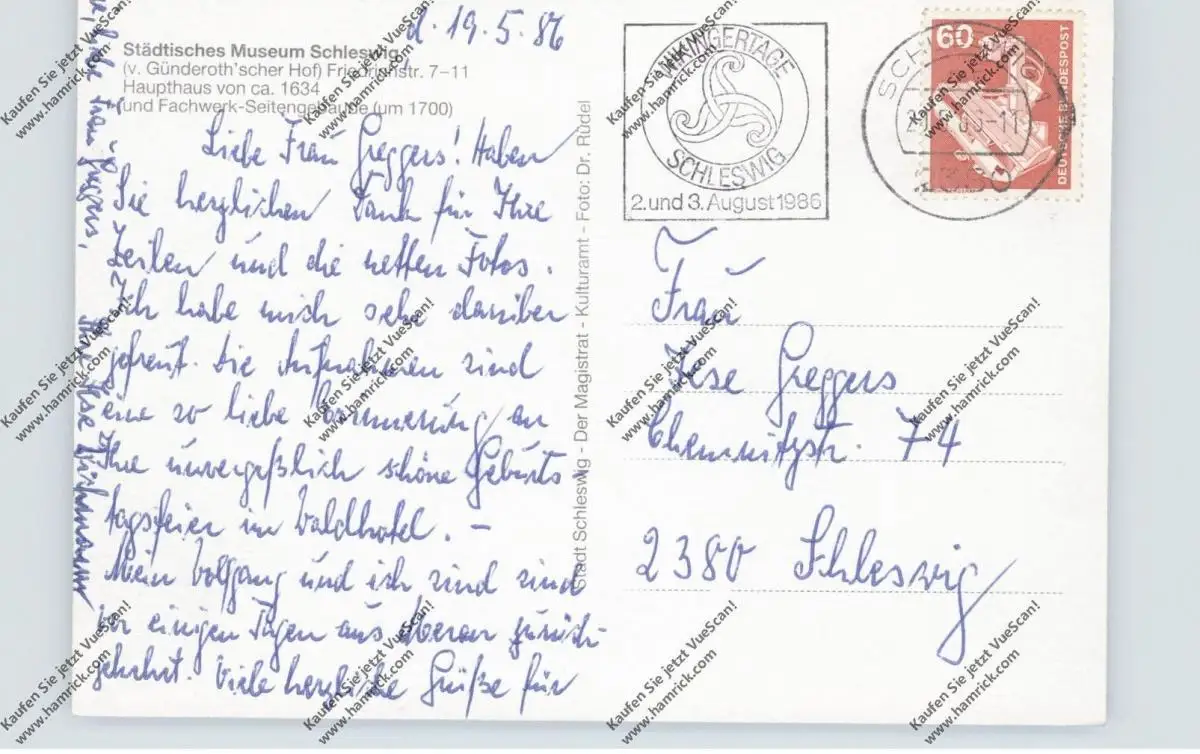 d. 19.5.86
Städtisches Museum Schleswig,
(v. Günderoth'scher Hof) Friedrichstr. 7–11
Haupthaus von ca. 1634
und Fachwerk-Seitengebäude (um 1700)
Liebe Frau Greggers! Haben
Sie herzlichen Dank für Ihre
Zeilen und die netten Fotos.
Ich habe mich sehr darüber
gefreut. Die Aufnahmen sind
eine so liebe Erinnerung an
Ihre unvergeßlich schöne Geburts-
tagsfeier im Waldhotel. –
Mein Wolfgang und ich sind sind
vor einigen Tagen aus Meran zurück-
gekehrt. Viele herzliche Grüße für
liebe Frau Greggers,
Ihre
Stadt Schleswig - Der Magistrat - Kulturamt - Foto: Dr. Rüdel
WIKINGERTAGE
SCHLESWIG
2. und 3. August 1986
SCHLESWIG
2380
60
DEUTSCHE BUNDESPOST
Frau
Greggers
Chemnitzstr. 74
2380 Schleswig
Kaufen Sie jetzt VueScan!
www.hamrick.com